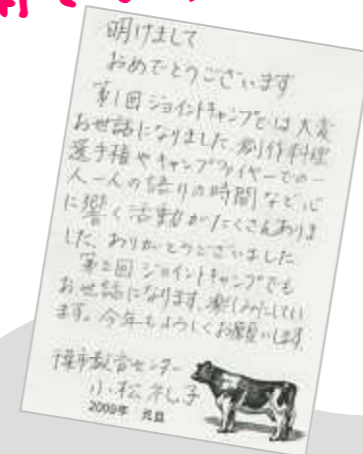 明けまして
おめでとうございます
第1回ジョイントキャンプでは大変
お世話になりました。創作料理
選手権やキャンプファイヤーでの一
人一人の語りの時間など、心
に響く活動がたくさんありま
した。ありがとうございました
第2回ジョイントキャンプでも
お世話になります。楽しみにしてい
ます。今年もよろしくお願いします。
千葉市教育センター
小松 礼子
2009年 元旦